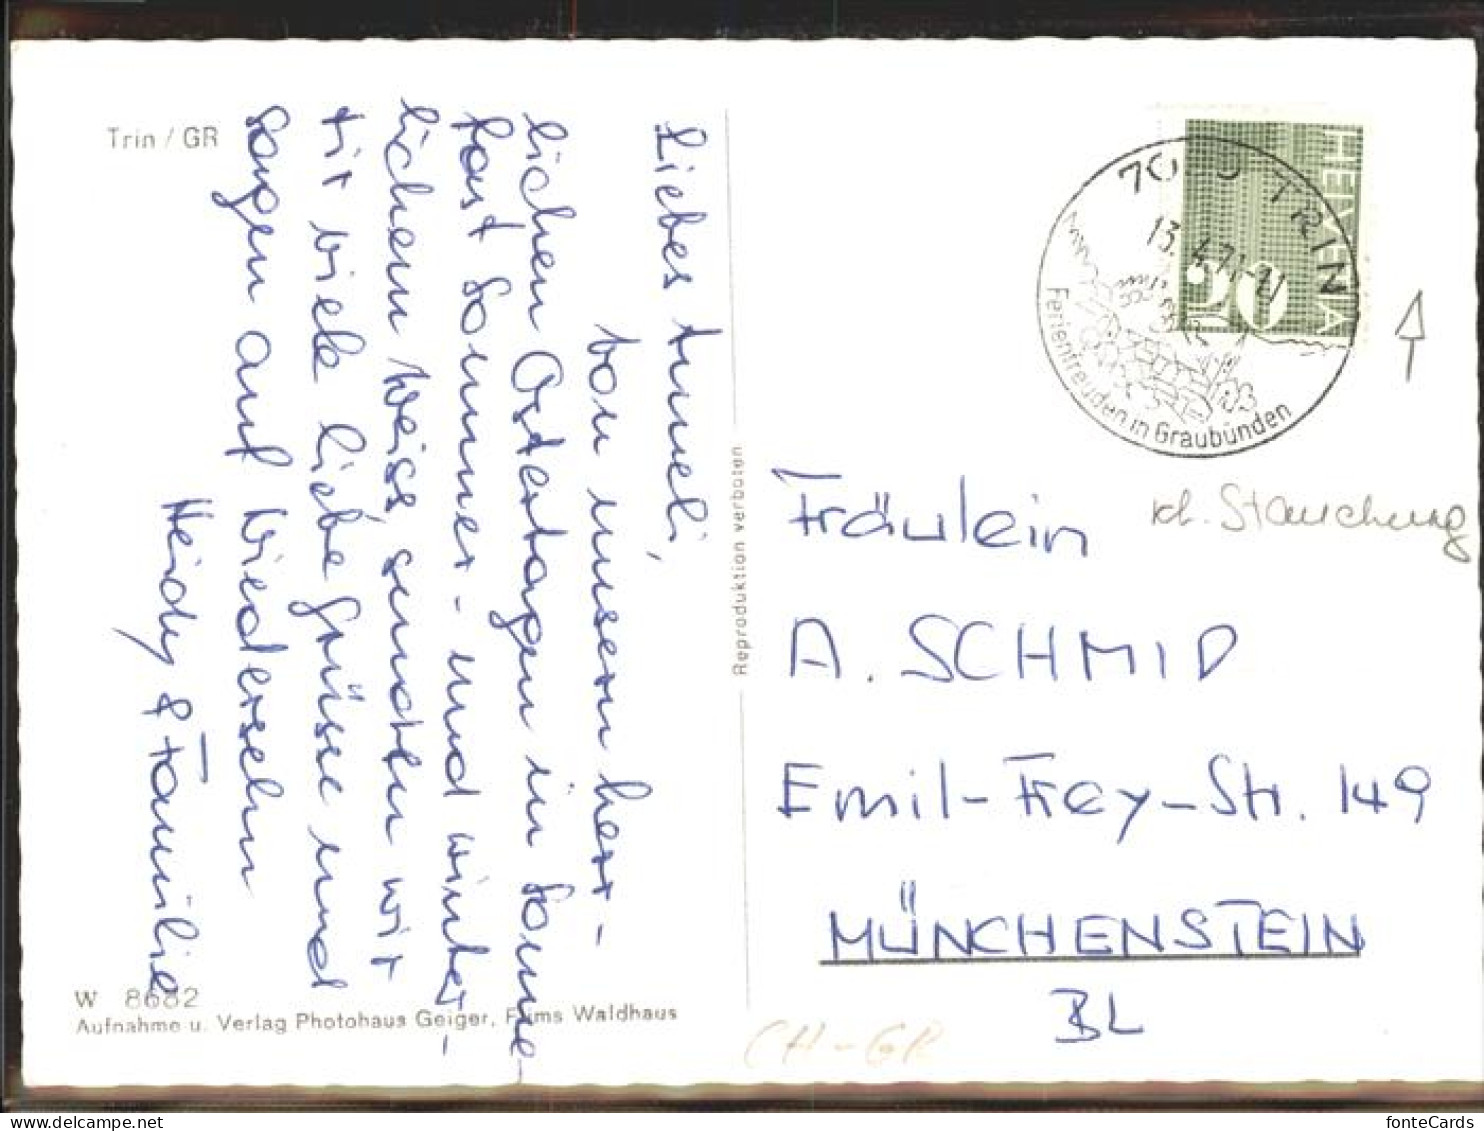 Trin / GR
Liebes Anneli,
von unsern herr-
lichen Ostertagen in Sonne-
fast Sommer- und winter-
lichem Weiss, senden wir
Dir viele liebe Grüsse und
sagen auf Wiedersehn
Heidy & Familie
W 8682
Aufnahme u. Verlag Photohaus Geiger, Flims Waldhaus
Reproduktion verboten
HELVETIA
20
TRIN
13.4.71-11
Ferienfreuden in Graubünden
kl. Stauchung
Fräulein
A. SCHMID
Emil-Frey-Str. 149
MÜNCHENSTEIN
BL
CH-GR
delcampe.net
fonteCards